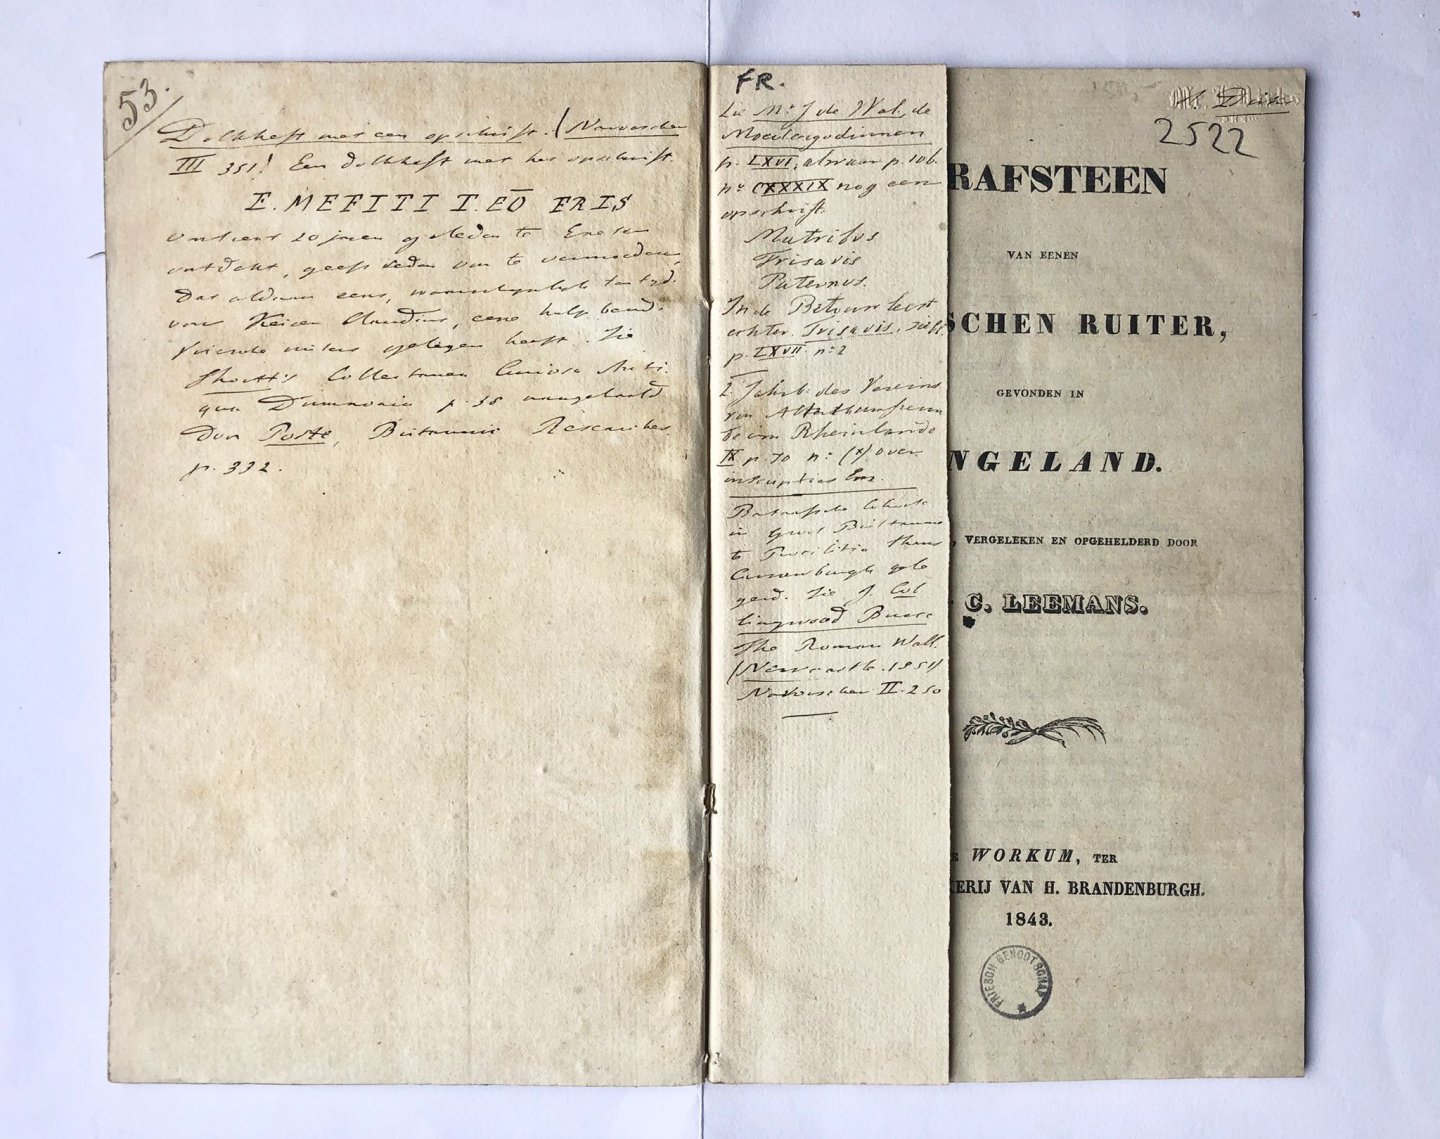 53.
Dolkheft met een opschrift. (Navorscher
III 351! Een dolkheft met het opschrift.
E. MEFITI T. EŌ FRIS
omtrent 20 jaren geleden te Exeter
ontdekt, geeft reden om te vermoeden,
dat aldaar eens, waarschijnlijk ten tijd.
van Keizer Claudius, eene hulpbend.
Friesche ruiters gelegen heeft. Zie
Shortt's Collectanea Curiosa Anti
qua Dumnonia p. 58 aangehaald
door Poste, Britannic Researches
p. 332.
FR.
Zie Mr. J de Wal, de
Moedergodinnen
p. LXVI, alwaar p. 106.
no CXXXIX nog een
opschrift.
Matribus
Frisavis
Paternus.
In de Betouw leest
echter Trisavis, zie
p. LXVII no 2
Jahrb: des Vereins
von Alterthumsfreun
de im Rheinlande
IX p. 70 n: (x) over
inscripties Enz.
Bataafsche Cohorte
in Groot Brittanne
te Procolitia thans
Carrawburgh gele
gerd. Zie J. Col
lingwood Bruce
The Roman Wall.
(Newcastle. 1851)
Navorscher II. 250
2522
RAFSTEEN
VAN EENEN
SCHEN RUITER,
GEVONDEN IN
NGELAND.
, VERGELEKEN EN OPGEHELDERD DOOR
C. LEEMANS.
WORKUM, TER
ERIJ VAN H. BRANDENBURGH.
1843.
FRIESCH GENOOTSCHAP